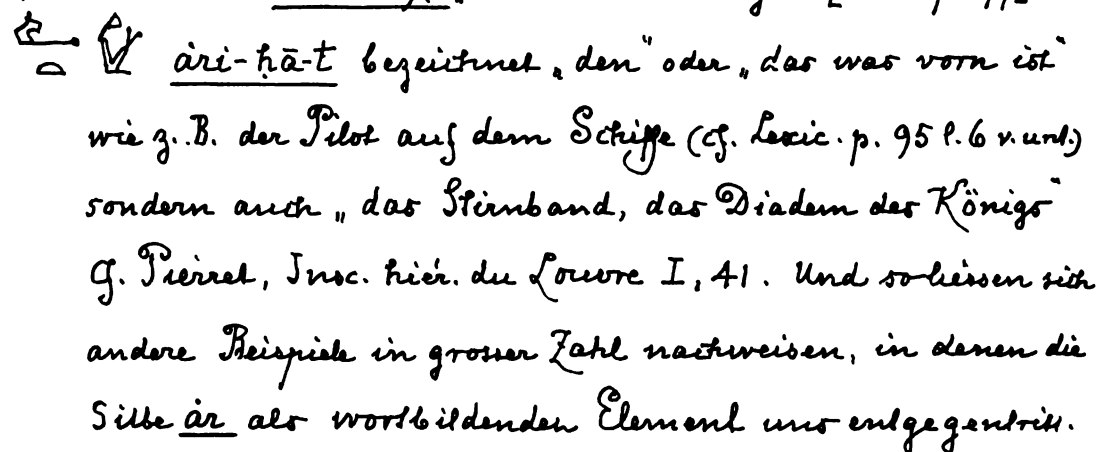 ȧri-ḥā-t bezeichnet „den“ oder „das was vorn ist“
wie z. B. der Pilot auf dem Schiffe (cf. Lexic. p. 95 l. 6 v. unt.)
sondern auch „das Stirnband, das Diadem des Königs“
cf. Pierret, Insc. hiér. du Louvre I, 41. Und so liessen sich
andere Beispiele in grosser Zahl nachweisen, in denen die
Silbe ȧr als wortbildendes Element uns entgegentritt.